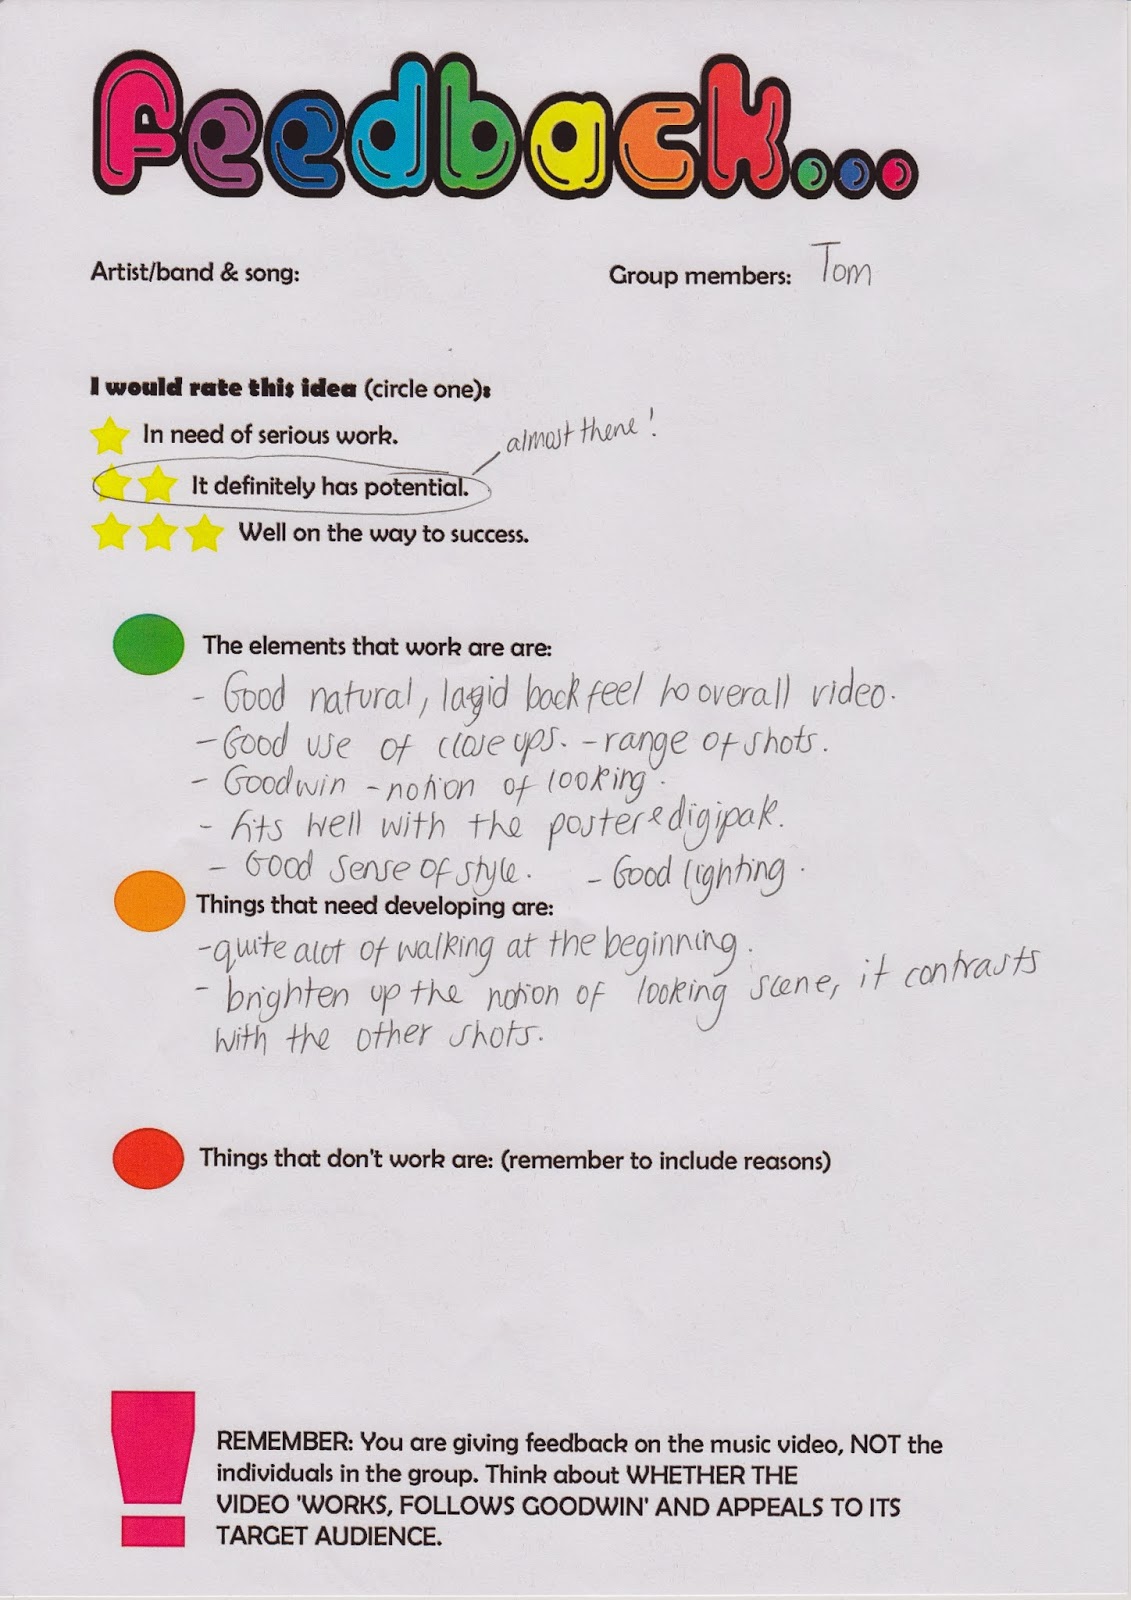 Feedback...
Artist/band & song:
Group members: Tom
I would rate this idea (circle one):
In need of serious work.
almost there!
It definitely has potential.
Well on the way to success.
The elements that work are are:
- Good natural, layid back feel to overall video.
- Good use of close ups. - range of shots.
- Goodwin - notion of looking.
- fits well with the poster & digipak.
- Good sense of style. - Good lighting.
Things that need developing are:
- quite alot of walking at the beginning.
- brighten up the notion of looking scene, it contrasts
with the other shots.
Things that don't work are: (remember to include reasons)
REMEMBER: You are giving feedback on the music video, NOT the
individuals in the group. Think about WHETHER THE
VIDEO 'WORKS, FOLLOWS GOODWIN' AND APPEALS TO ITS
TARGET AUDIENCE.